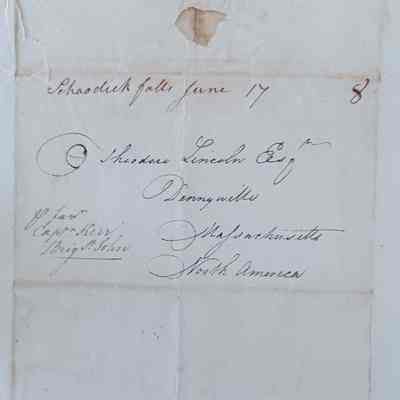 Schoodick falls June 17 8
Theodore Lincoln Esqr
Dennysville
Massachusetts
North America
p favr
Captn Kerr
Brig St John